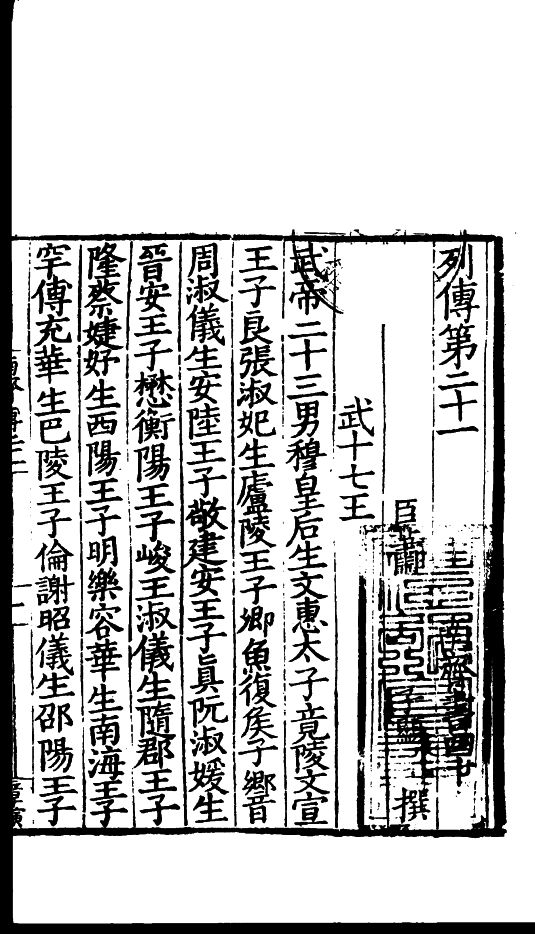 列傳第二十一　南齊書四十
臣蕭子顯撰
武十七王
武帝二十三男穆皇后生文惠太子竟陵文宣
王子良張淑妃生廬陵王子卿魚復侯子響
周淑儀生安陸王子敬建安王子眞阮淑媛生
晉安王子懋衡陽王子峻王淑儀生隨郡王子
隆蔡婕妤生西陽王子明樂容華生南海王子
罕傅充華生巴陵王子倫謝昭儀生邵陽王子